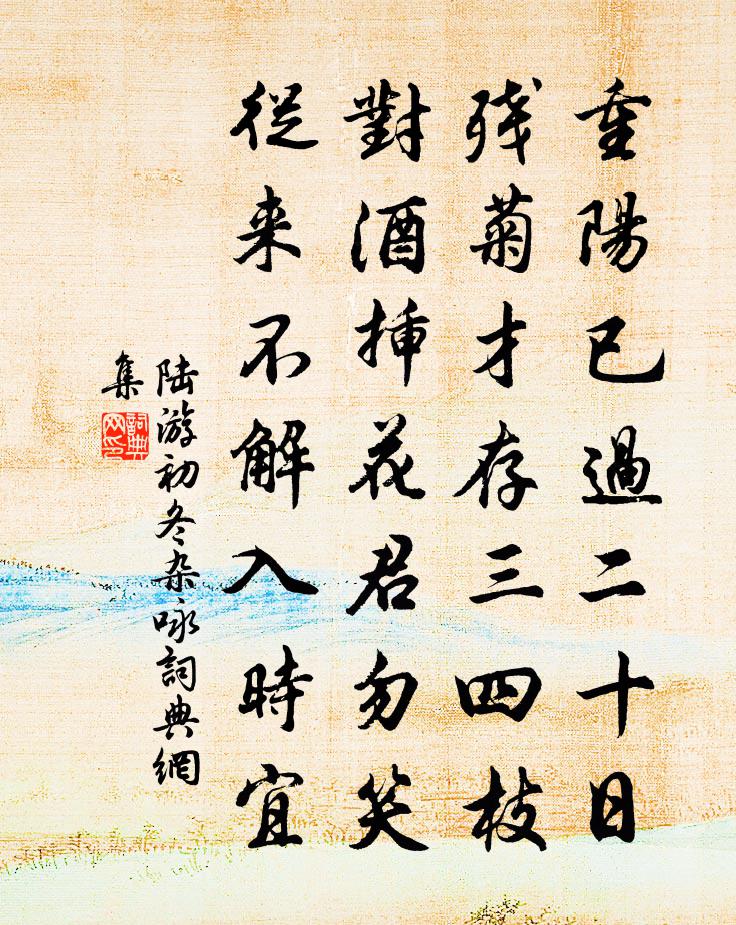 重陽已過二十日
残菊才存三四枝
對酒挿花君勿笑
從来不解入時宜
陆游初冬杂咏詞典網
集
詞典
网印